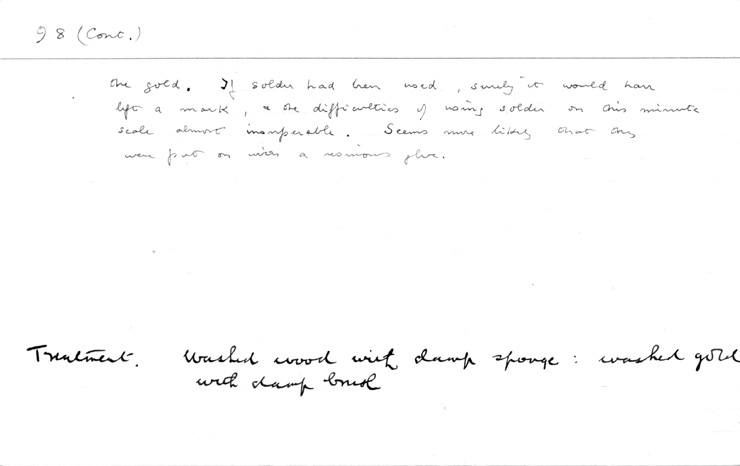 98 (Cont.)
the gold. If solder had been used, surely it would have
left a mark, & the difficulties of using solder on this minute
scale almost insuperable. Seems more likely that they
were put on with a resinous glue.
Treatment. Washed wood with damp sponge: washed gold
with damp brush